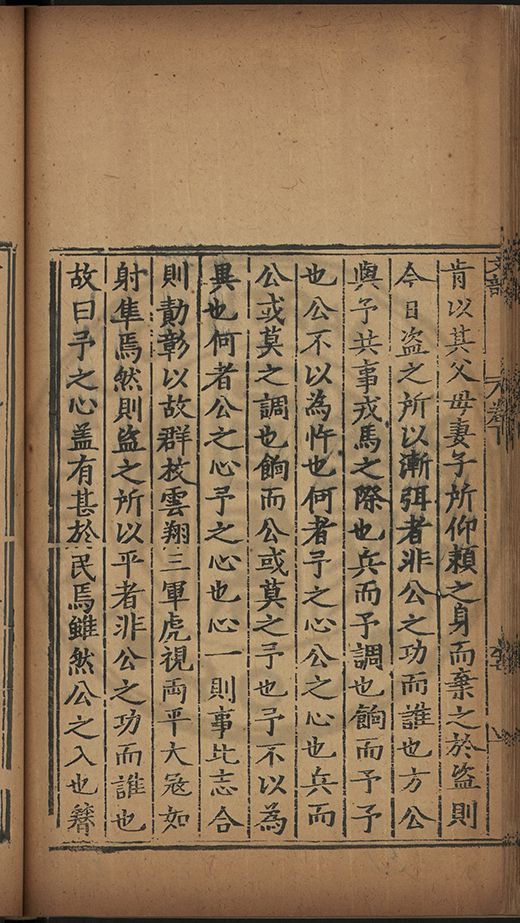 肯以其父母妻子所仰賴之身而棄之於盜則
今日盜之所以漸弭者非公之功而誰也方公
與予共事戎馬之際也兵而予調也餉而予予
也公不以為忤也何者予之心公之心也兵而
公或莫之調也餉而公或莫之予也予不以為
異也何者公之心予之心也心一則事比志合
則勣彰以故群技雲翔三軍虎視両平大寇如
射隼焉然則盜之所以平者非公之功而誰也
故曰予之心盖有甚於民焉雖然公之入也簪
文部
卷下